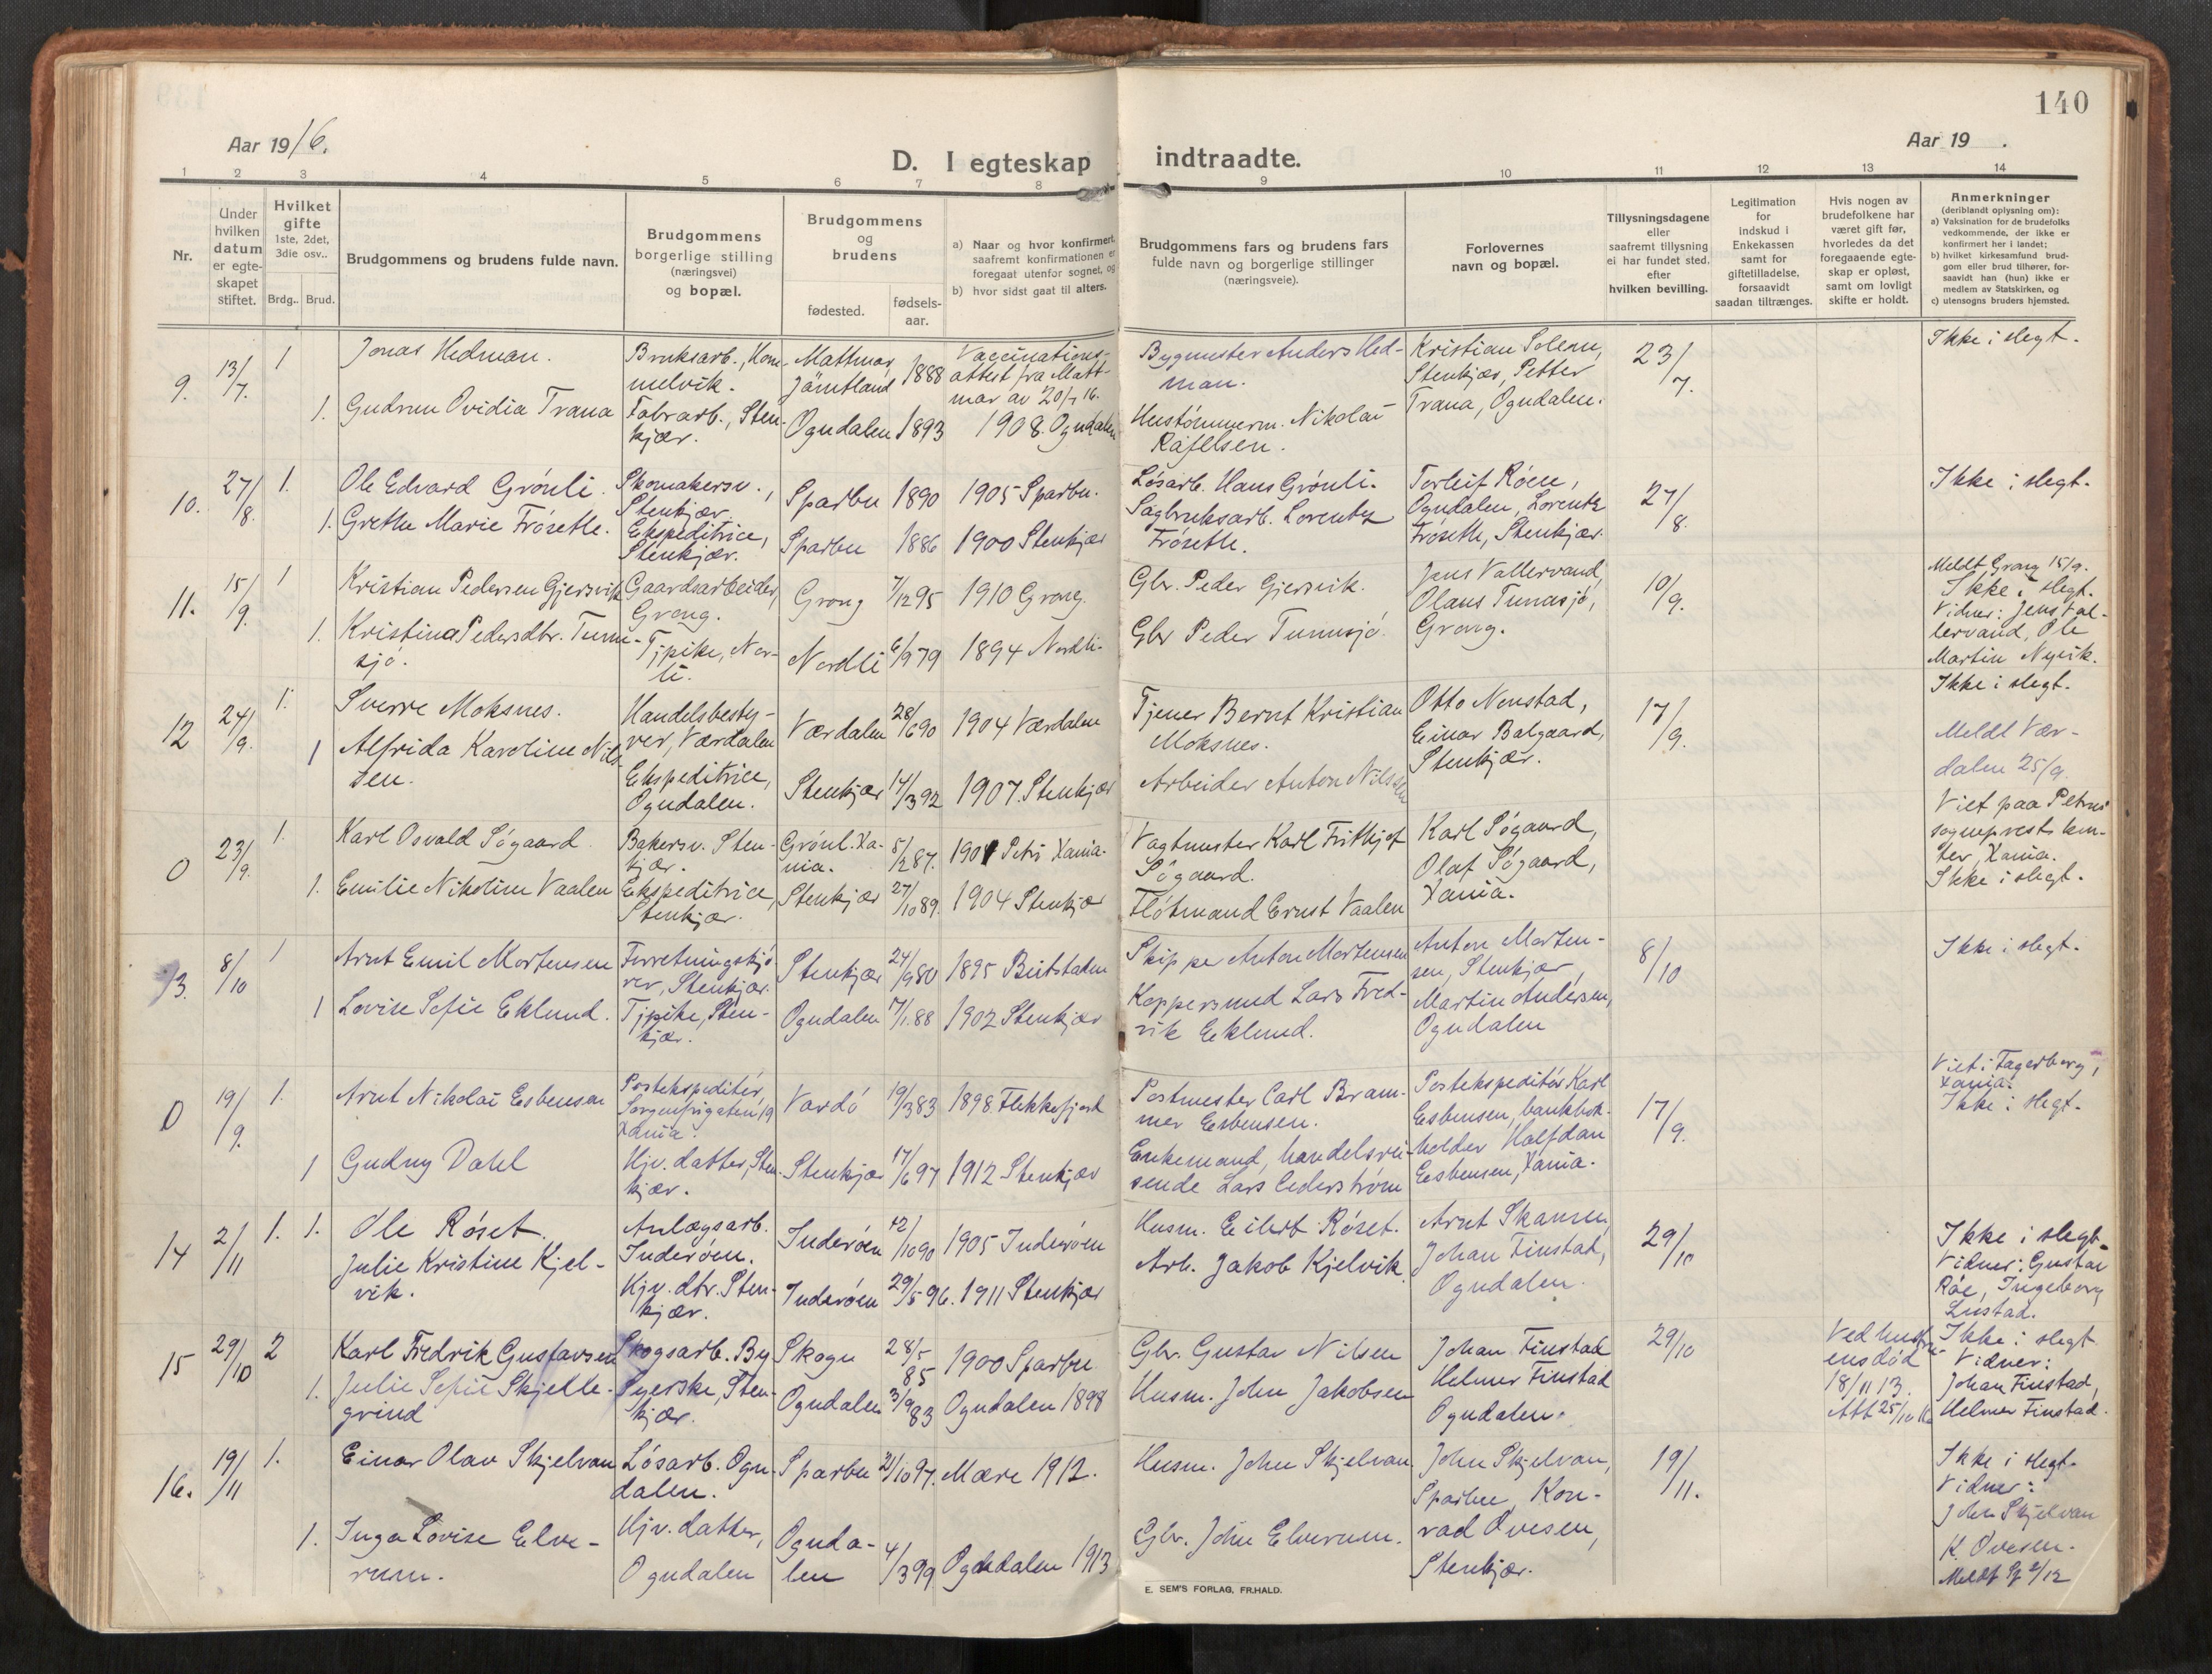 140
Aar 1916.
Aar 19 .
D. I egteskap indtraadte.
1 2 3 4 5 6 7 8 9 10 11 12 13 14
Nr.
Under
hvilken
datum
er egte-
skapet
stiftet.
Hvilket
gifte
1ste, 2det,
3die osv..
Brdg.. Brud.
Brudgommens og brudens fulde navn.
Brudgommens
borgerlige stilling
(næringsvei)
og bopæl.
Brudgommens
og
brudens
fødested.
fødsels-
aar.
a) Naar og hvor konfirmert,
saafremt konfirmationen er
foregaat utenfor sognet, og
b) hvor sidst gaat til alters.
Brudgommens fars og brudens fars
fulde navn og borgerlige stillinger
(næringsveie).
Forlovernes
navn og bopæl.
Tillysningsdagene
eller
saafremt tillysning
ei har fundet sted,
efter
hvilken bevilling.
Legitimation
for
indskud i
Enkekassen
samt for
giftetilladelse,
forsaavidt
saadan tiltrænges.
Hvis nogen av
brudefolkene har
været gift før,
hvorledes da det
foregaaende egte-
skap er opløst,
samt om lovligt
skifte er holdt.
Anmerkninger
(deriblandt oplysning om):
a) Vaksination for de brudefolks
vedkommende, der ikke er
konfirmert her i landet;
b) hvilket kirkesamfund brud-
gom eller brud tilhører, for-
saavidt han (hun) ikke er
medlem av Statskirken, og
c) utensogns bruders hjemsted.
9.
13/7.
1
Jonas Hedman.
Bruksarb., Hom-
melvik.
Mattmar,
Jämtland
1888
Vaccinations-
attest fra Matt-
mar av 20/7 16.
Bygmester Anders Hed-
man.
Kristian Solem,
Stenkjær, Petter
Trana, Ogndalen.
23/7.
Ikke i slegt.
1.
Gudrun Ovidia Trana
Fabrarb., Sten-
kjær.
Ogndalen
1893
1908. Ogndalen
Hustømmerm. Nikolai
Rafelsen.
10.
27/8.
1.
Ole Edvard Grønli.
Skomakersv.,
Stenkjær.
Sparbu
1890
1905 Sparbu.
Løsarb. Hans Grønli.
Torleif Røen,
Ogndalen, Lorentz
Frøsetle, Stenkjær.
27/8.
Ikke i slegt.
1.
Grethe Marie Frøsetle.
Ekspeditrice,
Stenkjær.
Sparbu
1886
1900 Stenkjær
Sagbruksarb. Lorentz
Frøsetle.
11.
15/9.
1
Kristian Pedersen Gjersvik
Gaardsarbeider,
Grong.
Grong
7/12 95
1910 Grong.
Gbr. Peder Gjersvik.
Jens Vallervand,
Olaus Tunnsjø,
Grong.
10/9.
Meldt Grong 15/9.
Ikke i slegt.
Vidner: Jens Val-
lervand, Ole
Martin Nyvik.
1.
Kristina Pedersdtr. Tunn-
sjø.
Tjpike, Nor-
li.
Nordli
6/9 79
1894 Nordli.
Gbr Peder Tunnsjø.
12
24/9.
1.
Sverre Moksnes.
Handelsbesty-
rer, Værdalen
Værdalen
28/6 90
1904 Værdalen
Tjener Bernt Kristian
Moksnes.
Otto Nenstad,
Einar Balgaard,
Stenkjær.
17/9.
Ikke i slegt.
Meldt Vær-
dalen 25/9.
1
Alfrida Karoline Nils-
sen.
Ekspeditrice,
Ogndalen.
Stenkjær
14/3 92
1907. Stenkjær
Arbeider Anton Nilssen
0
23/9.
1.
Karl Osvald Søgaard.
Bakersv. Sten-
kjær.
Grønl. Xa-
nia.
5/2 87.
1901 Petri Xania.
Vagtmester Karl Frithjof
Søgaard.
Karl Søgaard,
Olaf Søgaard,
Xania.
Viet paa Petrus
sogneprestskon-
tor, Xania.
Ikke i slegt.
1.
Emilie Nikoline Vaalen
Ekspeditrice,
Stenkjær.
Stenkjær
27/10 89.
1904 Stenkjær
Fløtmand Ernst Vaalen
13.
8/10
1
Arnt Emil Mortensen
Forretningskjø-
rer, Stenkjær.
Stenkjær
24/9 80
1895 Beitstaden
Skipper Anton Mortensen
Anton Morten-
sen, Stenkjær,
Martin Andersen,
Ogndalen
8/10
Ikke i slegt.
1
Lovise Sofie Eklund.
Tjpike, Sten-
kjær.
Ogndalen
7/1. 88
1902 Stenkjær
Koppersmed Lars Fred-
rik Eeklund.
0
19/9.
1.
Arnt Nikolai Esbensen
Postekspeditør,
Sorgenfrigaten 19
Xania.
Vardø
19/3 83
1898 Flekkefjord
Postmester Carl Bram-
mer Esbensen.
Postekspeditør Karl
Esbensen, bankbok-
holder Halfdan
Esbensen, Xania.
17/9.
Viet i Fagerborg,
Xania.
Ikke i slegt.
1
Gudny Dahl
Hjv. datter, Sten-
kjær.
Stenkjær
17/6 97
1912 Stenkjær
Enkemand, handelsrei-
sende Lars Cederstrøm
14
2/11
1. 1.
Ole Røset.
Anlægsarb.
Inderøen.
Inderøen
12/10 90
1905 Inderøen
Husm. Eilert Røset.
Arnt Skansen,
Johan Finstad,
Ogndalen.
29/10
Ikke i slegt.
Vidner: Gustav
Røe, Ingeborg
Lustad.
Julie Kristine Kjel-
vik.
Hjv. dtr. Sten-
kjær.
Inderøen
29/5 96.
1911 Stenkjær
Arb. Jakob Kjelvik.
15
29/10
2
Karl Fredrik Gustavsen
Skogsarb. By
Skogn
28/5 85
1900 Sparbu
Gbr. Gustav Nilsen
Johan Finstad
Helmer Finstad
Ogndalen.
29/10
Ved hustru-
ens død
18/11 13.
Att 25/10 16
Ikke i slegt
Vidner:
Johan Finstad,
Helmer Finstad.
1.
Julie Sofie Skjelle-
grind
Syerske, Sten-
kjær.
Ogndalen
3/9 83
Ogndalen 1898
Husm. John Jakobsen
16.
19/11
1.
Einar Olav Skjelvan
Løsarb. Ogn-
dalen.
Sparbu
21/10 97.
Mære 1912.
Husm. John Skjelvan.
John Skjelvan,
Sparbu, Kon-
rad Ovesen,
Stenkjær.
19/11.
Ikke i slegt.
Vidner:
John Skjelvan
K. Ovesen.
Meldt Sp 2/12
1.
Inga Lovise Elve-
rum.
Hjv. datter,
Ogndalen
Ognda-
len
4/3 99
Ogndalen 1913
Gbr. John Elverum.
E. SEM'S FORLAG, FR.HALD.